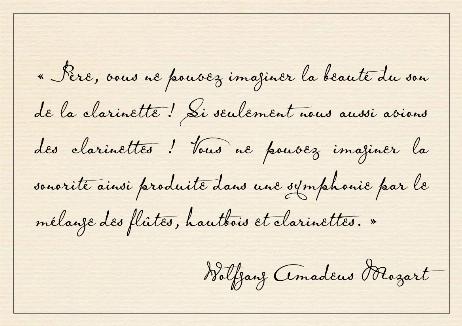 « Père, vous ne pouvez imaginer la beauté du son
de la clarinette ! Si seulement nous aussi avions
des clarinettes ! Vous ne pouvez imaginer la
sonorité ainsi produite dans une symphonie par le
mélange des flûtes, hautbois et clarinettes. »
Wolfgang Amadeus Mozart